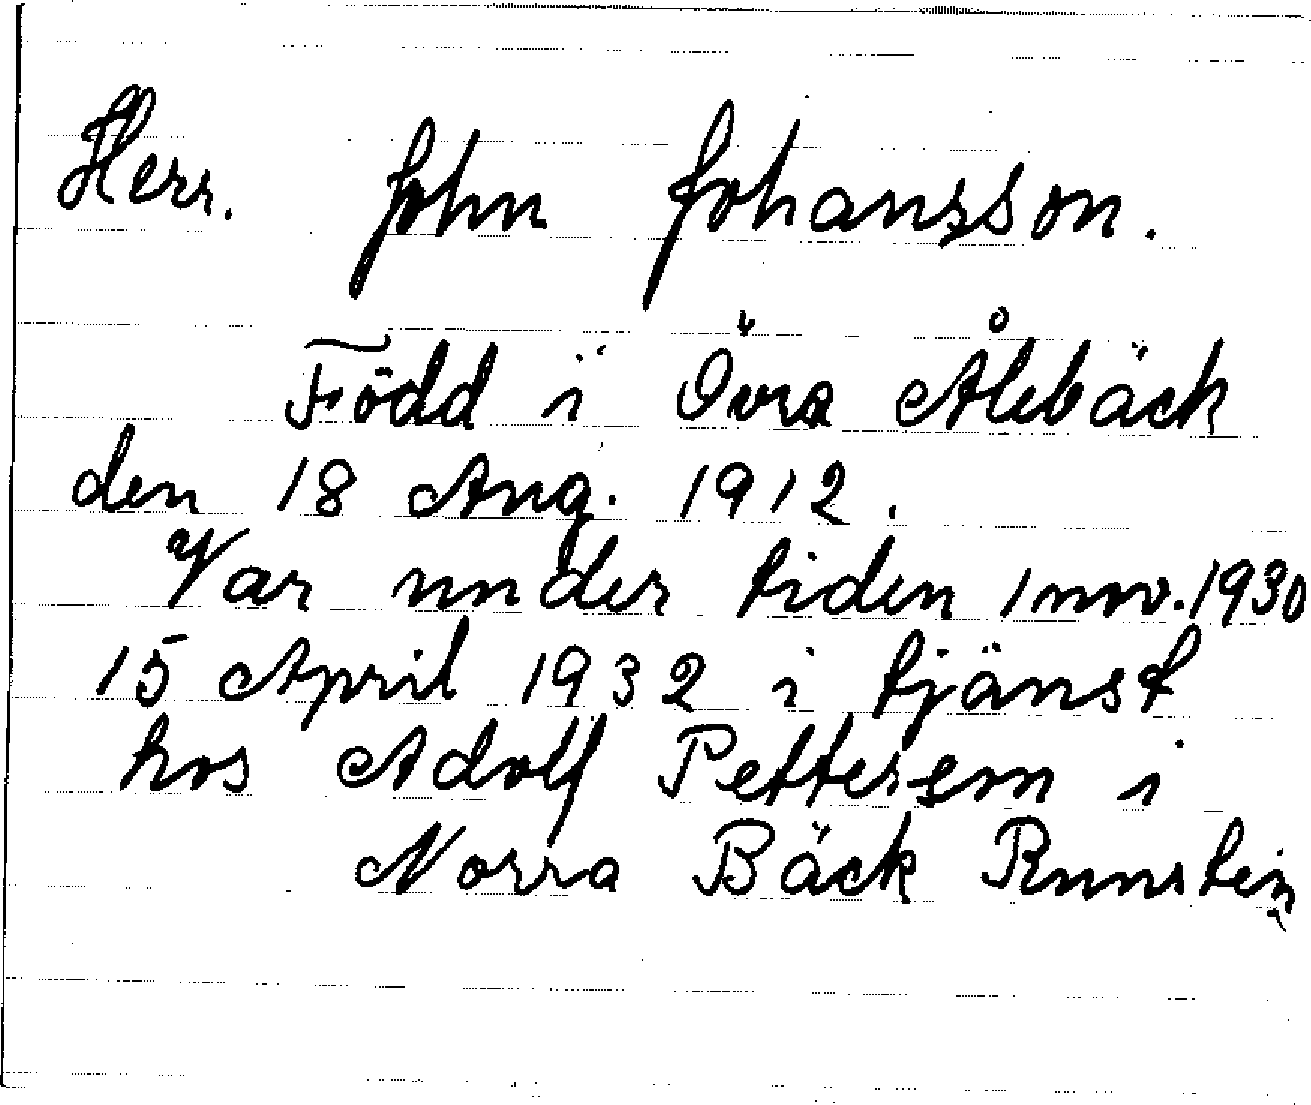 Herr. John Johansson.
Född i Övra Ålebäck
den 18 Aug. 1912.
Var under tiden 1 nov. 1930
15 April 1932 i tjänst
hos Adolf Petterson i
Norra Bäck Runsten